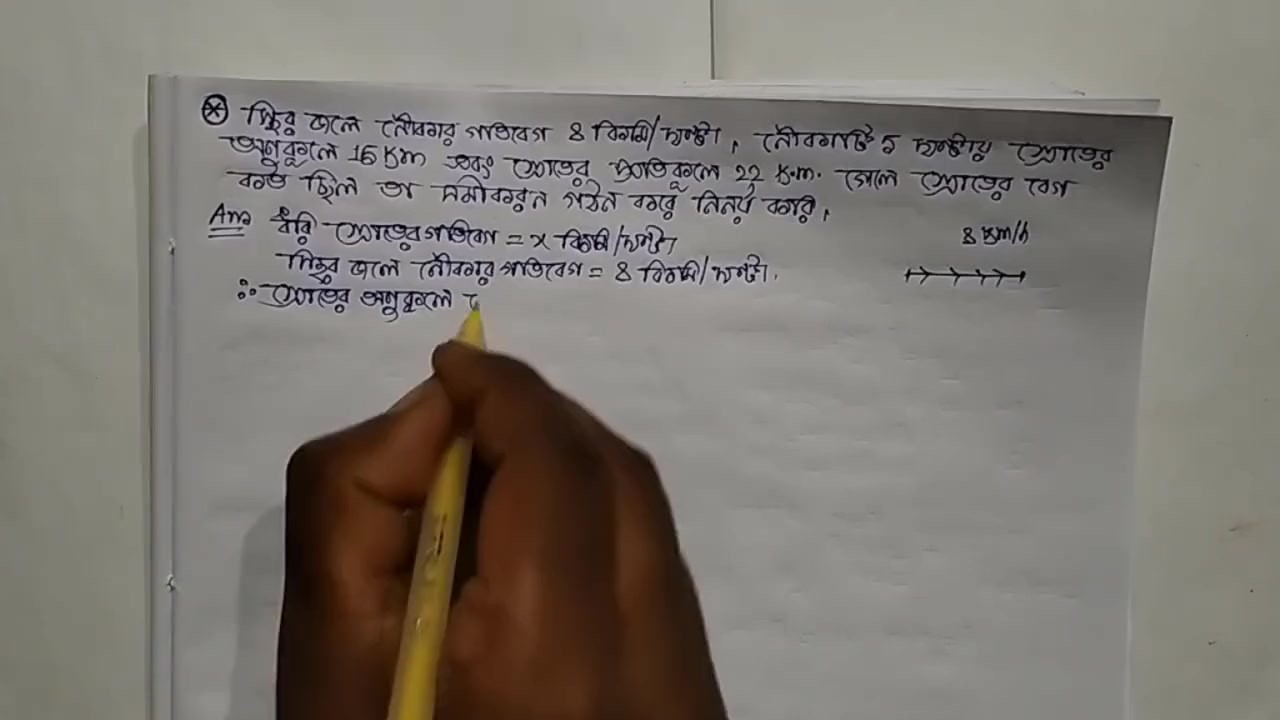 স্থির জলে নৌকার গতিবেগ 8 কিমি/ঘণ্টা। নৌকাটি 5 ঘণ্টায় স্রোতের
অনুকূলে 15 Km এবং স্রোতের প্রতিকূলে 22 K.m. গেলে স্রোতের বেগ
কত ছিল তা সমীকরন গঠন করে নির্নয় করি।
Ans ধরি স্রোতের গতিবেগ = x কিমি/ঘণ্টা
8 Km/h
স্থির জলে নৌকার গতিবেগ = 8 কিমি/ঘণ্টা.
∴ স্রোতের অনুকূলে